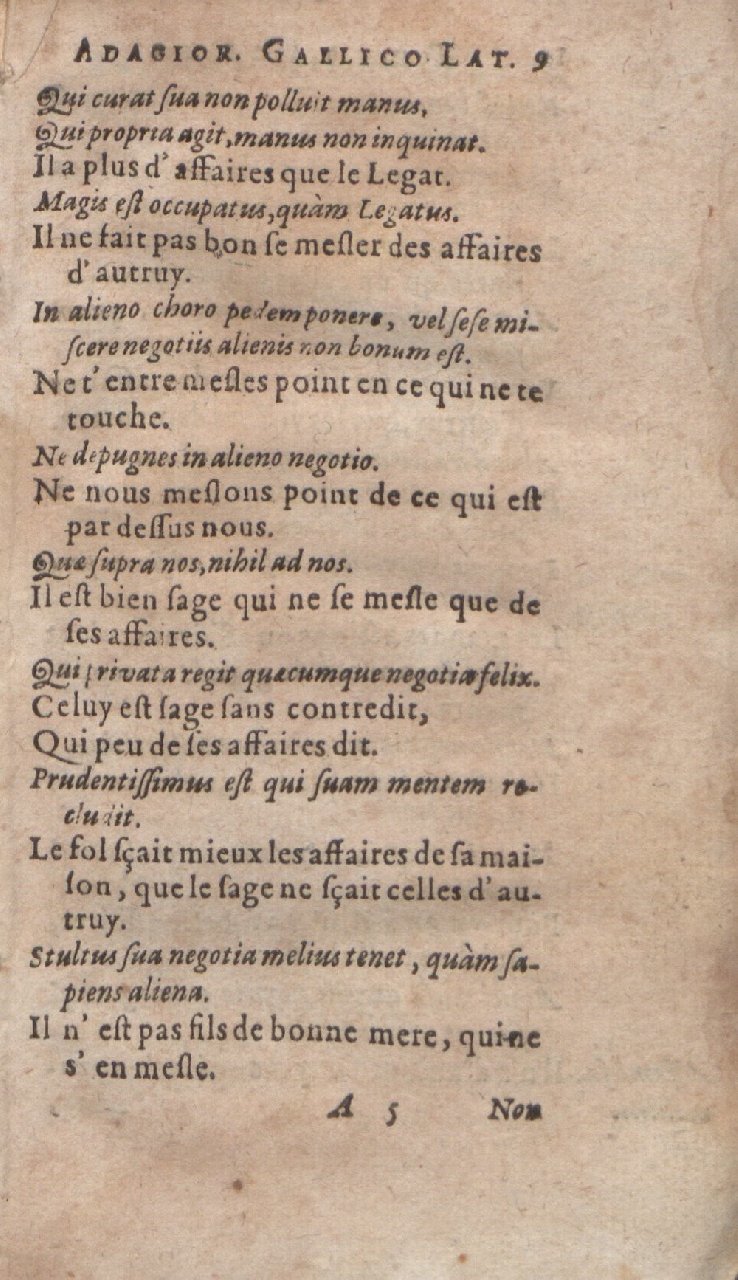 ADAGIOR. GALLICO LAT. 9
Qui curat ſua non polluit manus,
Qui propria agit, manus non inquinat.
Il a plus d'affaires que le Legat.
Magis eſt occupatus, quàm Legatus.
Il ne fait pas bon ſe meſler des affaires
d'autruy.
In alieno choro pedem ponere, vel ſeſe mi-
ſcere negotiis alienis non bonum eſt.
Ne t'entre meſles point en ce qui ne te
touche.
Ne depugnes in alieno negotio.
Ne nous meſlons point de ce qui eſt
par deſſus nous.
Quæ ſupra nos, nihil ad nos.
Il eſt bien ſage qui ne ſe meſle que de
ſes affaires.
Qui privata regit quæcumque negotia felix.
Celuy eſt ſage ſans contredit,
Qui peu de ſes affaires dit.
Prudentiſſimus eſt qui ſuam mentem re-
cludit.
Le fol ſçait mieux les affaires de ſa mai-
ſon, que le ſage ne ſçait celles d'au-
truy.
Stultus ſua negotia melius tenet, quàm ſa-
piens aliena.
Il n'eſt pas fils de bonne mere, qui ne
s'en meſle.
A 5 Non